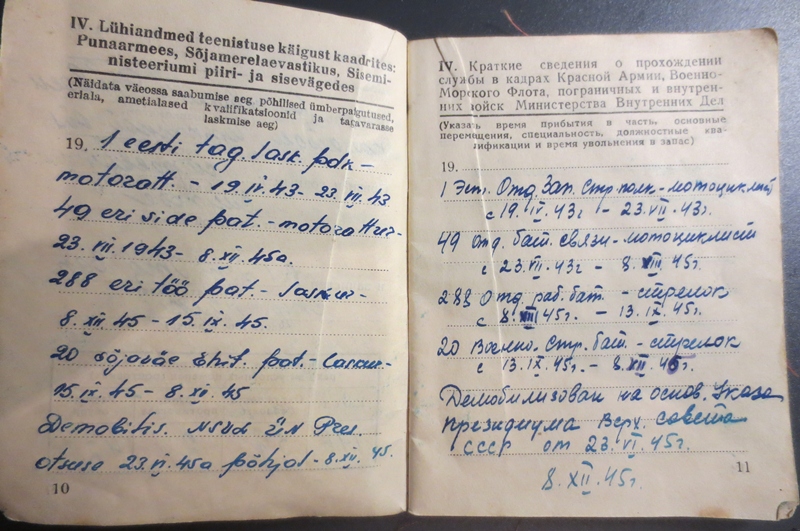 IV. Lühiandmed teenistuse käigust kaadrites:
Punaarmees, Sõjamerelaevastikus, Sisemi-
nisteeriumi piiri- ja sisevägedes
(Näidata väeossa saabumise aeg, põhilised ümberpaigutused,
eriala, ametialased kvalifikatsioonid ja tagavarasse
laskmise aeg)
19. 1 eesti tag. lask. polk-
motoratt. - 19.IV.43- 23.VII.43
49 eri side pat. - motorattur-
23.VII.1943- 8.XII.45a.
288 eri töö pat. - laskur-
8.XII 45 - 15.IX.45.
20 sõjaväe ehit. pat. - laskur-
15.IX.45 - 8.XII.45
Demobilis. NSVL ÜN Pres.
otsuse 23.VI.45a põhjal - 8.XII.45.
10
IV. Краткие сведения о прохождении
службы в кадрах Красной Армии, Военно-
Морского Флота, пограничных и внутрен-
них войск Министерства Внутренних Дел
(Указать время прибытия в часть, основные
перемещения, специальность, должностные ква-
лификации и время увольнения в запас)
19.
1 Эст. Отд. Зап. Стр. полк - мотоциклист
с 19.IV.43г - 23.VII.43г.
49 отд. бат. связи - мотоциклист
с 23.VII.43г - 8.VIII.45г.
288 Отд. раб. бат. - стрелок
с 8.VIII 45г. - 13.IX.45г.
20 Военно. Стр. бат. - стрелок
с 13.IX.45г. - 8.XII.45г.
Демобилизован на основ. Указа
президиума Верх. совета
СССР от 23.VI.45г.
8.XII.45г.
11